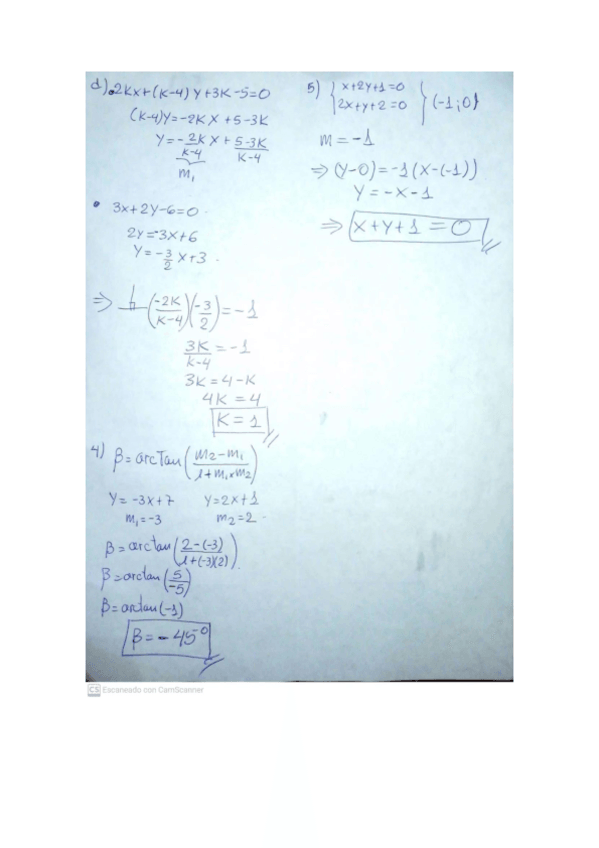 d) • 2Kx+(K-4)Y+3K-5=0
(K-4)Y=-2KX+5-3K
Y=-2K/K-4 X+5-3K/K-4
m₁
• 3X+2Y-6=0
2Y=-3X+6
Y=-3/2 X+3.
⇒ (-2K/K-4)(-3/2)=-1
3K/K-4=-1
3K=4-K
4K=4
K=1
4) β=arcTan(m₂-m₁/1+m₁×m₂)
Y=-3X+7 Y=2X+1
m₁=-3 m₂=2
β=arctan(2-(-3)/1+(-3)(2))
β=arctan(5/-5)
β=artan(-1)
β=-45°
5) { x+2y+1=0
2x+y+2=0 } (-1;0)
m=-1
⇒ (Y-0)=-1(X-(-1))
Y=-X-1
⇒ X+Y+1=0
CS Escaneado con CamScanner